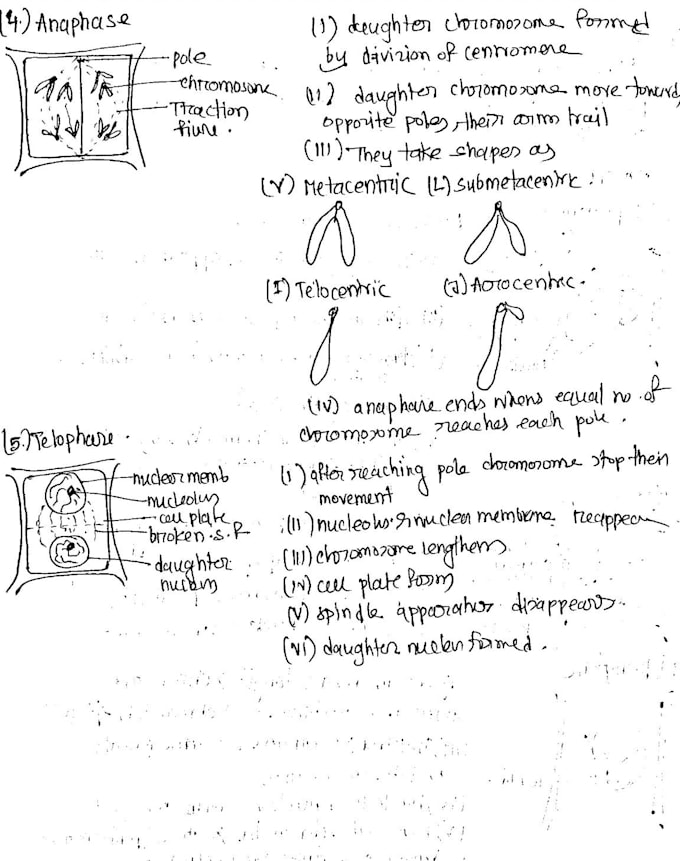 (4.) Anaphase
pole
chromosome
Traction
fibre.
(I) daughter chromosome formed
by division of centromere
(II) daughter chromosome move toward
opposite poles, their arm trail
(III) They take shapes as
(V) Metacentric (L) Submetacentric.
(I) Telocentric (J) Acrocentric.
(IV) anaphase ends whens equal no. of
chromosome reaches each pole.
(5.) Telophase.
nuclear memb
nucleolus
cell plate
broken S.F
daughter
nucleus
(I) after reaching pole chromosome stop their
movement
(II) nucleolus & nuclear membrane reappear
(III) chromosome lengthens
(IV) cell plate form
(V) spindle apparatus disappears.
(VI) daughter nuclei formed.